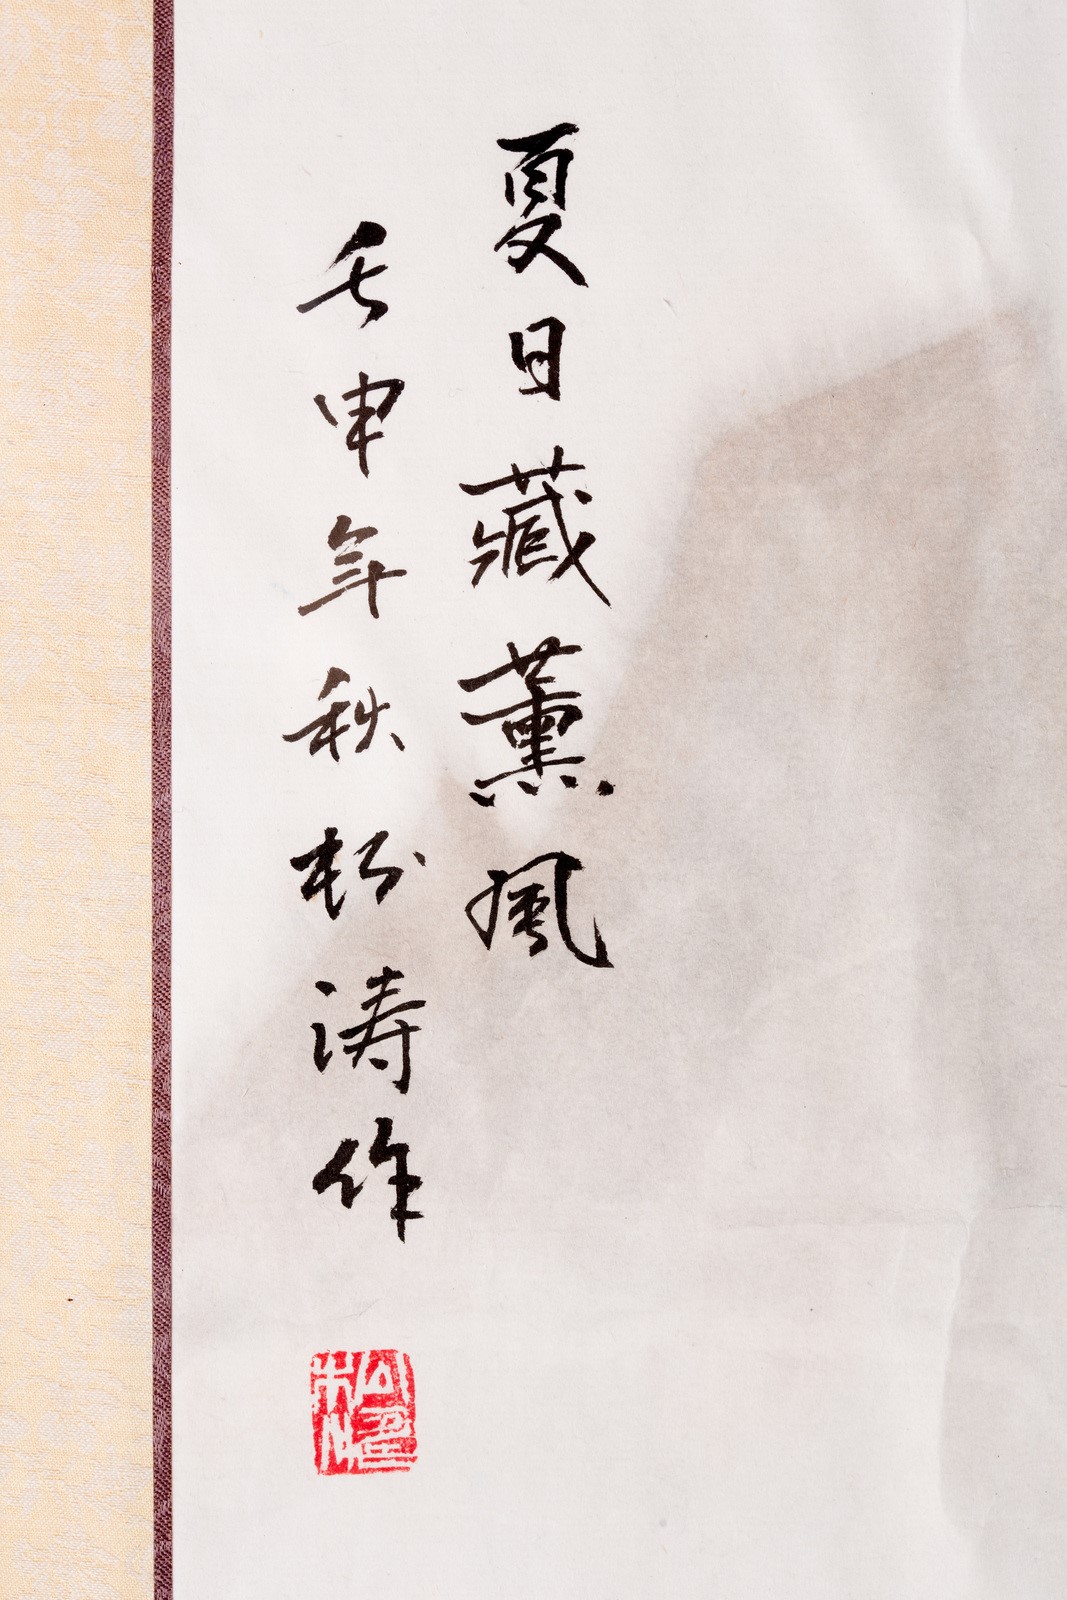 夏日藏薰風
壬申年秋松涛作